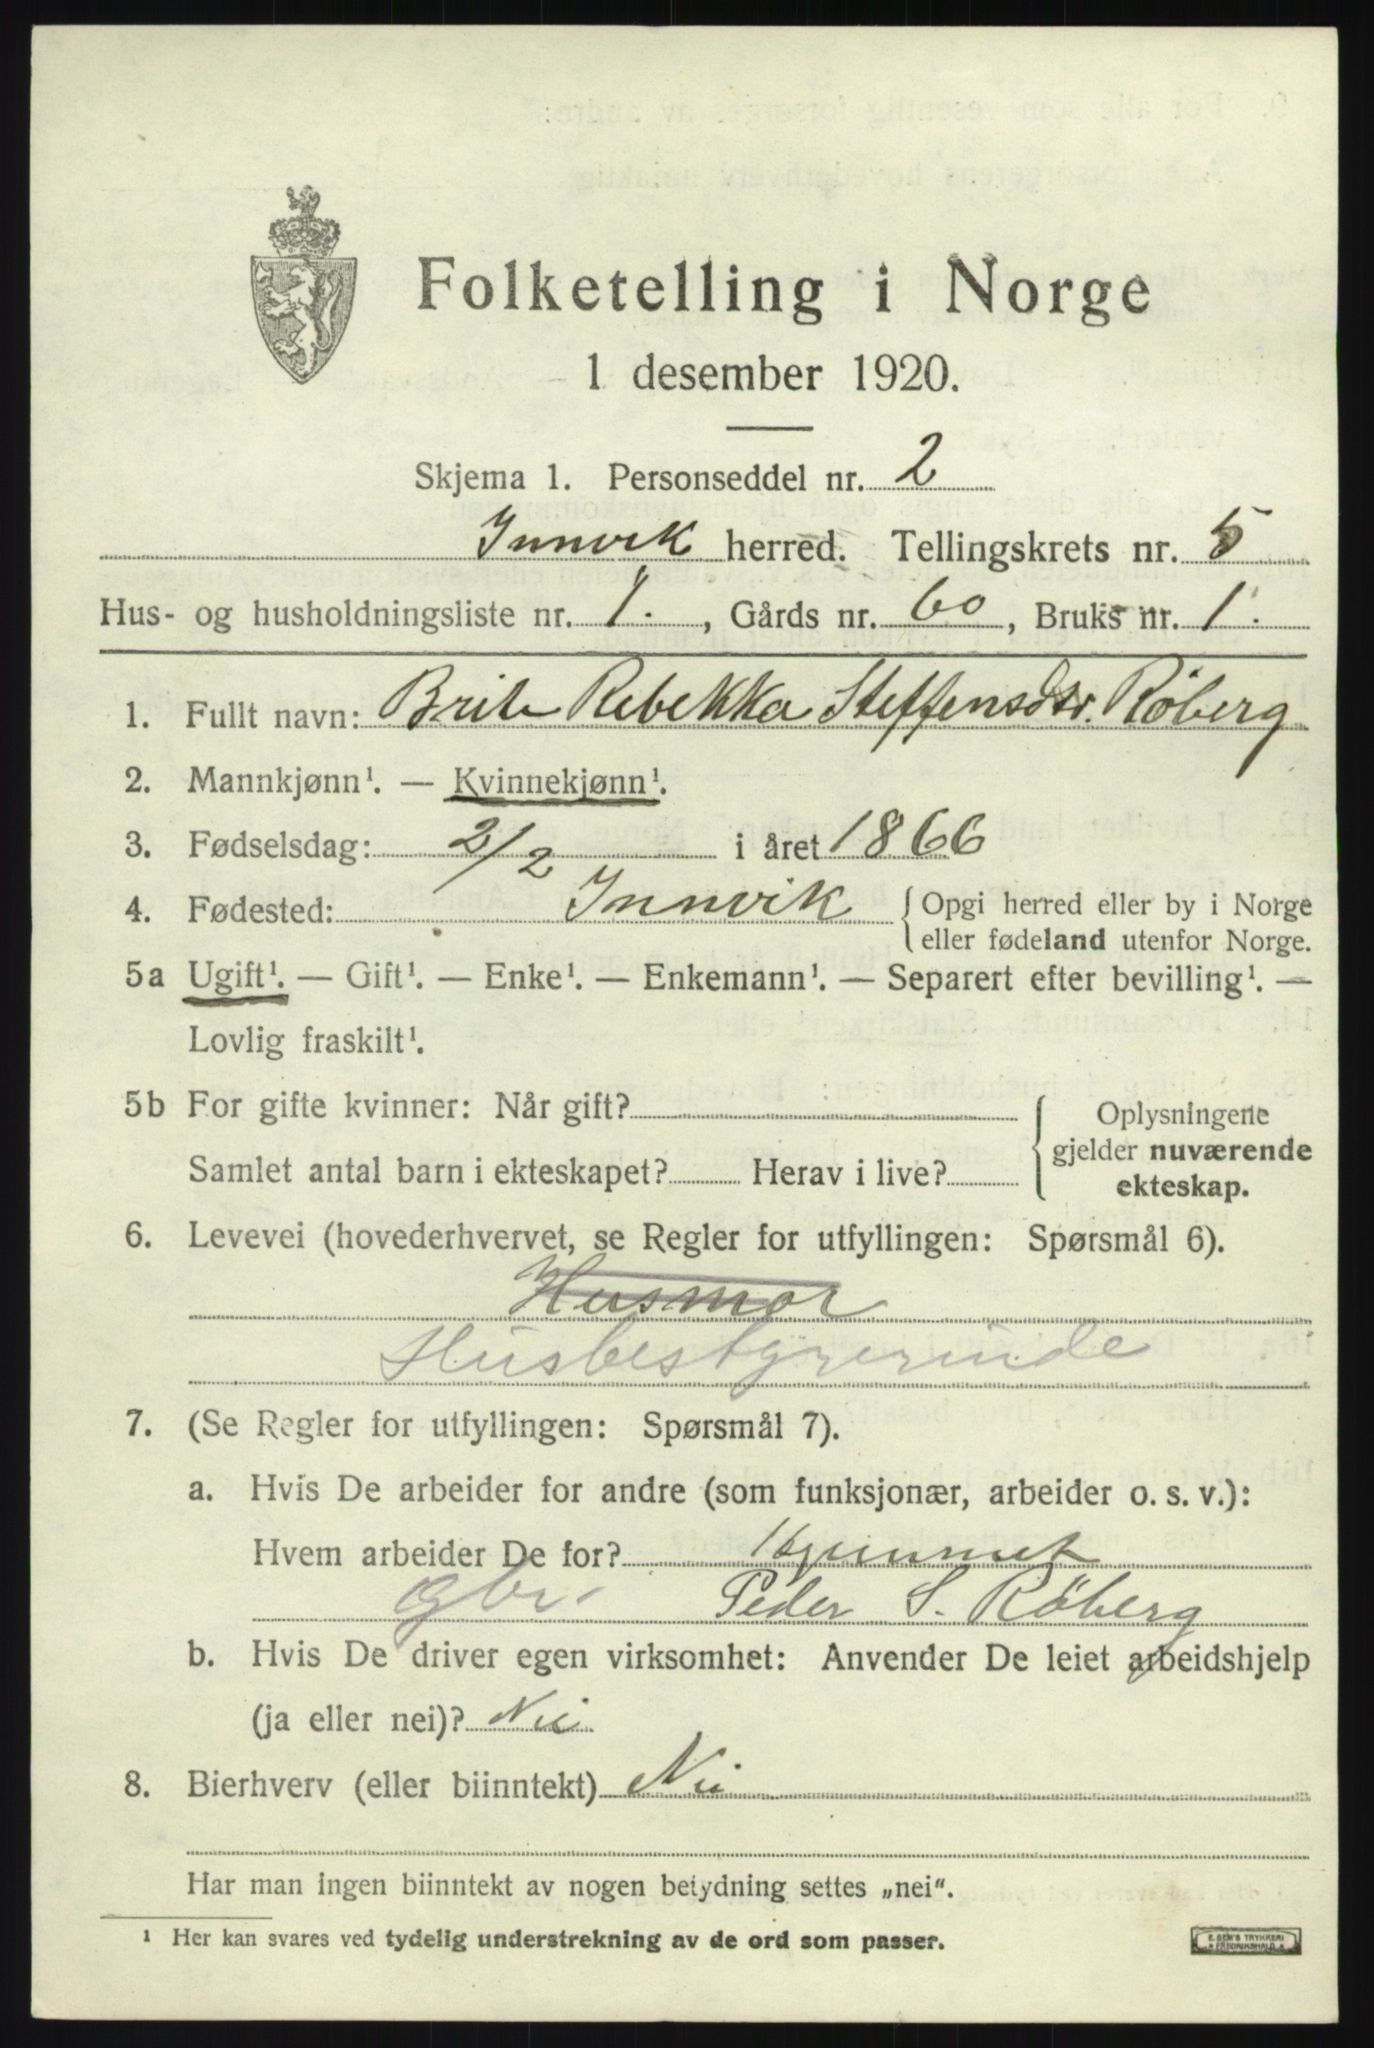 Folketelling i Norge
1 desember 1920.
Skjema 1. Personseddel nr. 2
Innvik herred. Tellingskrets nr. 5
Hus- og husholdningsliste nr. 1. , Gårds nr. 60 , Bruks nr. 1.
1. Fullt navn: Brite Rebekka Steffensdtr. Røberg
2. Mannkjønn¹. — Kvinnekjønn¹.
3. Fødselsdag: 2/2 i året 1866
4. Fødested: Innvik { Opgi herred eller by i Norge
eller fødeland utenfor Norge.
5a Ugift¹. — Gift¹. — Enke¹. — Enkemann¹. — Separert efter bevilling¹. —
Lovlig fraskilt¹.
5b For gifte kvinner: Når gift?
Samlet antal barn i ekteskapet? Herav i live?
Oplysningene
gjelder nuværende
ekteskap.
6. Levevei (hovederhvervet, se Regler for utfyllingen: Spørsmål 6).
Husmor
Husbestyrerinde
7. (Se Regler for utfyllingen: Spørsmål 7).
a. Hvis De arbeider for andre (som funksjonær, arbeider o. s. v.):
Hvem arbeider De for? Hjemmet
gbr. Peder S. Röberg
b. Hvis De driver egen virksomhet: Anvender De leiet arbeidshjelp
(ja eller nei)? Nei
8. Bierhverv (eller biinntekt) Nei
Har man ingen biinntekt av nogen betydning settes „nei".
¹ Her kan svares ved tydelig understrekning av de ord som passer.
E. SEM'S TRYKKERI
FREDRIKSHALD